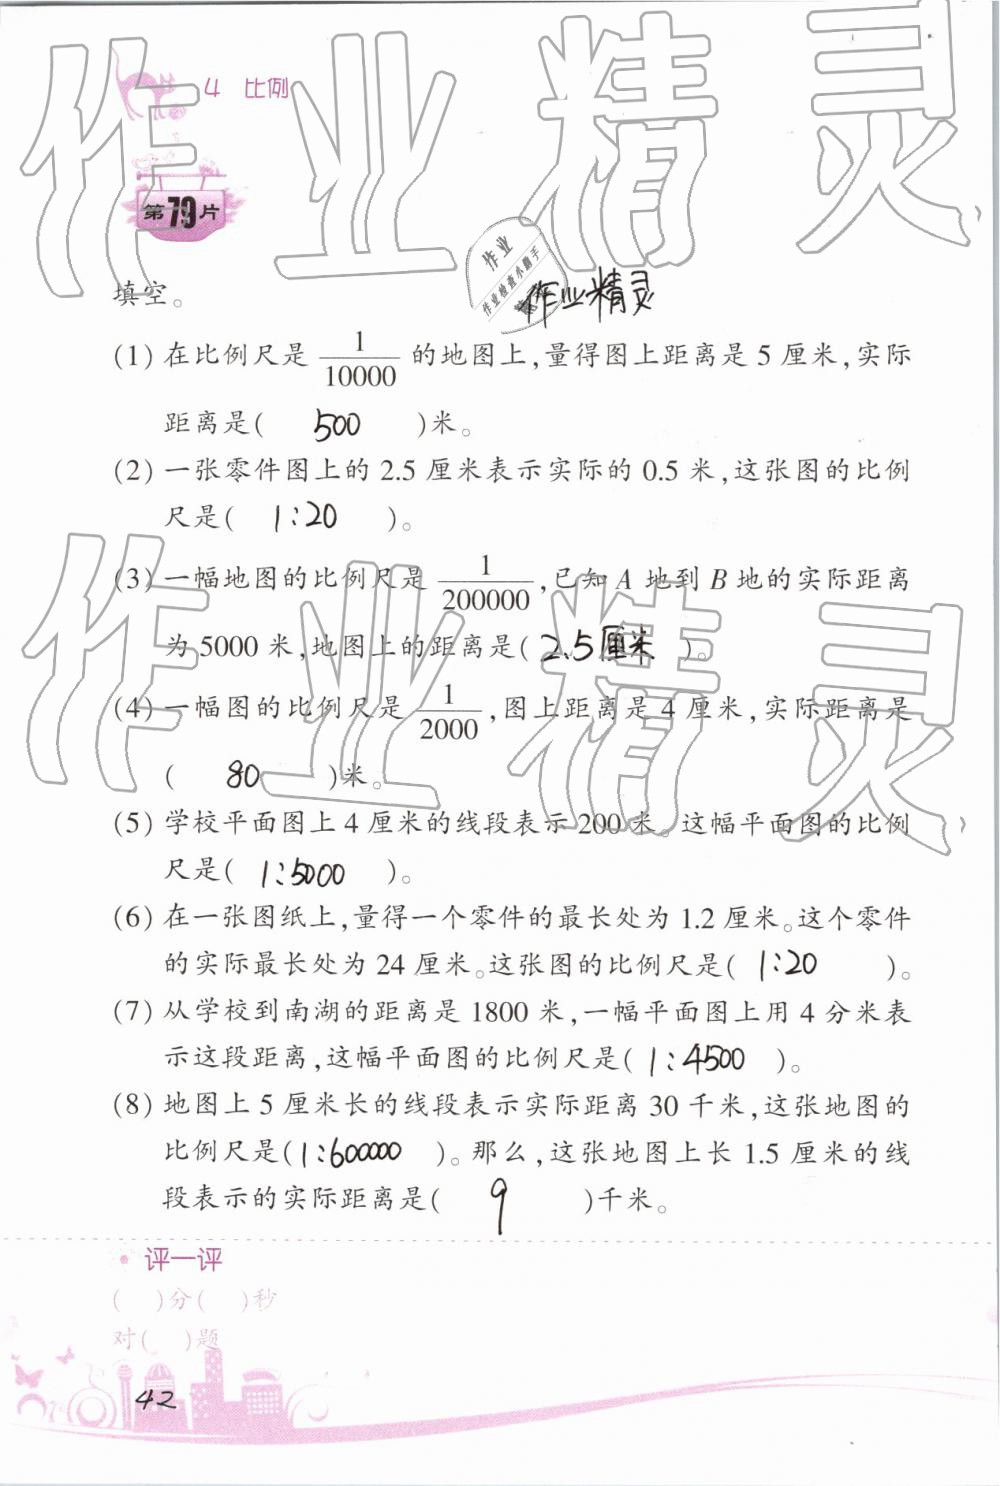 4 比例
第79片
作业精灵
作业
作业检查小助手
填空。
作业精灵
(1) 在比例尺是 1/10000 的地图上,量得图上距离是 5 厘米,实际
距离是( 500 )米。
(2) 一张零件图上的 2.5 厘米表示实际的 0.5 米,这张图的比例
尺是( 1:20 )。
(3) 一幅地图的比例尺是 1/200000 ,已知 A 地到 B 地的实际距离
为 5000 米,地图上的距离是( 2.5厘米 )。
作业精灵
(4) 一幅图的比例尺是 1/2000 ,图上距离是 4 厘米,实际距离是
( 80 )米。
(5) 学校平面图上 4 厘米的线段表示 200 米。这幅平面图的比例
尺是( 1:5000 )。
(6) 在一张图纸上,量得一个零件的最长处为 1.2 厘米。这个零件
的实际最长处为 24 厘米。这张图的比例尺是( 1:20 )。
(7) 从学校到南湖的距离是 1800 米,一幅平面图上用 4 分米表
示这段距离,这幅平面图的比例尺是( 1:4500 )。
(8) 地图上 5 厘米长的线段表示实际距离 30 千米,这张地图的
比例尺是( 1:600000 )。那么,这张地图上长 1.5 厘米的线
段表示的实际距离是( 9 )千米。
评一评
( )分( )秒
对( )题
42